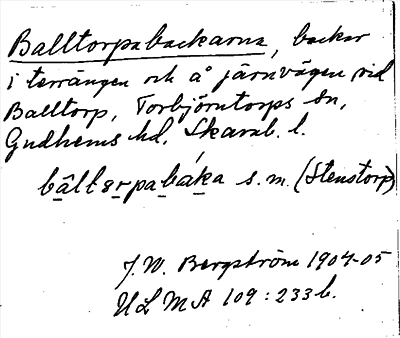 Balltorpabackarna, backar
i terrängen och å järnvägen vid
Balltorp, Torbjörntorps sn,
Gudhems hd, Skarab. l.
bâltərpabáka s. m. (Stenstorp)
J. W. Bergström 1904-05
ULMA 109:233 b.